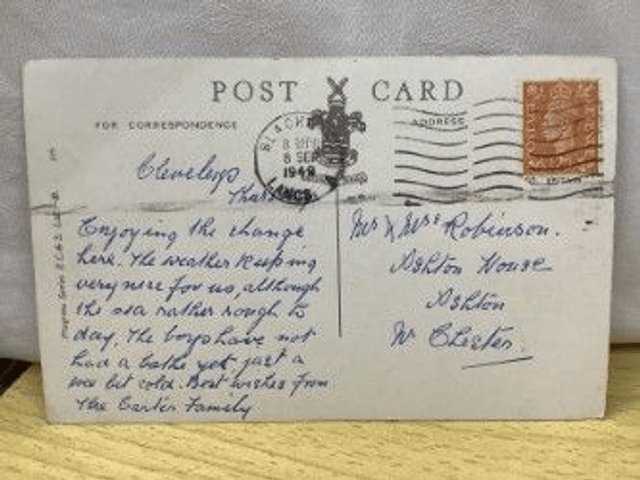 POST CARD
FOR CORRESPONDENCE
ADDRESS
BLACK
8 SEP
1948
LANCS
Cleveleys
Enjoying the change
here. The weather keeping
very nice for us, although
the sea rather rough to
day. The boys have not
had a bathe yet just a
wee bit cold. Best wishes from
The Carter Family
Mr & Mrs Robinson.
Ashton House
Ashton
Nr Chester.